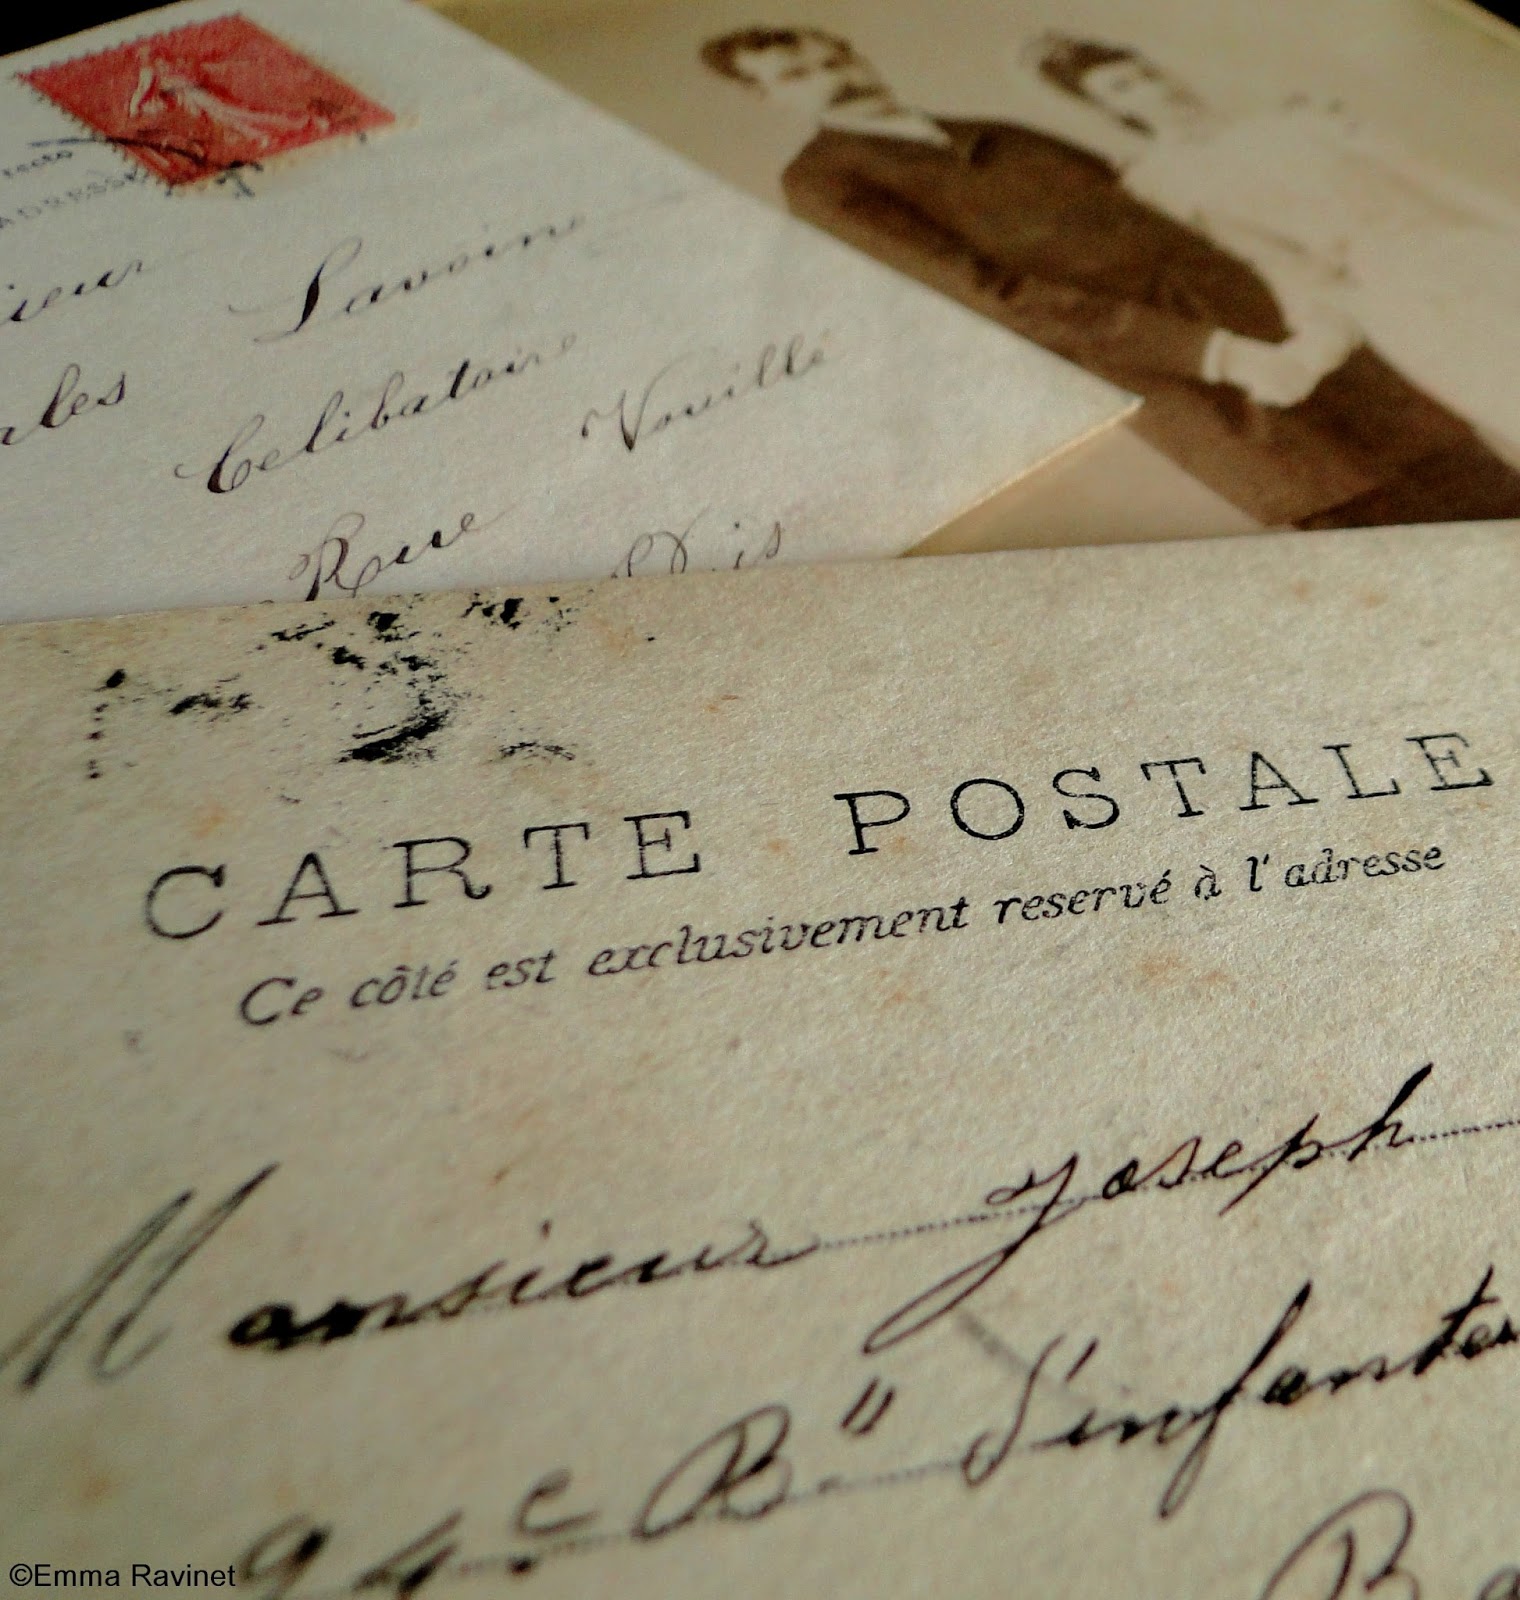 recto
ADRESSE
ieur Lavoine
les Celibataire
Rue Vouillé
CARTE POSTALE
Ce côté est exclusivement reservé à l'adresse
Monsieur Joseph
94e R" d'infanter
Ba
©Emma Ravinet